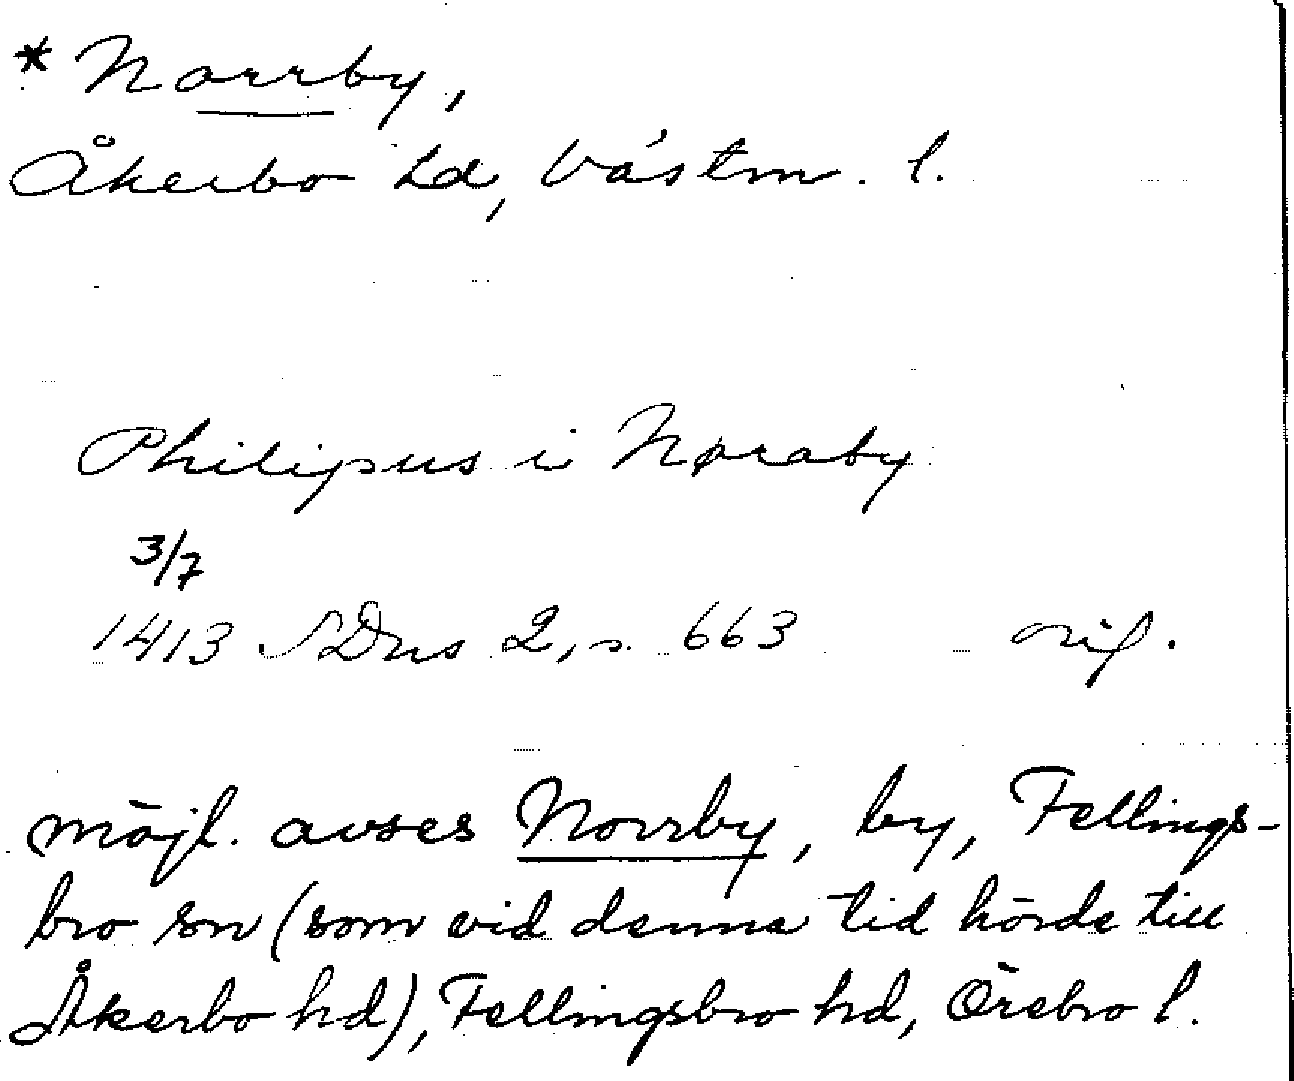 * Norrby,
Åkerbo hd, Västm. l.
Philipus i Nøraby
3/7
1413 SDns 2, s. 663 orig.
möjl. avses Norrby, by, Fellings-
bro sn (som vid denna tid hörde till
Åkerbo hd), Fellingsbro hd, Örebro l.